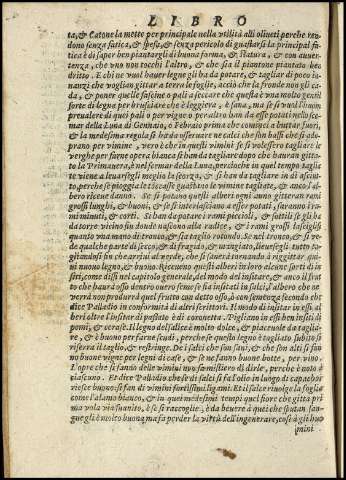 LIBRO
ta, & Catone la mette per principale nella vtilità alli oliueti perche ren
dono senza fatica, & spesa, & senza pericolo di guastarsi la principal fa
tica è di saper ben piantargli di buona forma, & statura, & con auuer
tenza, che vno non tocchi l'altro, & che sia il piantone piantato ben
dritto. E chi ne vuol hauer legne gli ha da potare, & tagliar di poco in
nanzi che vogliano gittar a terra le foglie, acciò che la fronde non gli ca
da, & poner quelle fascine o pali a seccare che questa è vna molto gentil
sorte di legna per brusciare che è leggiera, è sana, ma se si vuol l'huom
preualere di quei pali o per vigne o per altro han da esser potati nello sce
mar della Luna di Gennaio, ò Febraio prima che comincino a buttar fuori,
& la medesima regola si hà da osseruare ne salci che son bassi che si ado
prano per vimine, vero è che in questi vimini se si volessero tagliare le
verghe per farne opera bianca si ben da tagliare dopo che hauran gittato
la Primauera, è nel scemar della Luna, percioche in quel tempo taglia
te viene a leuarsegli meglio la scorza, & si han da tagliare in dì asciut
to, perche se pioggia le toccasse guastano le vimine tagliate, & anco l'al
bero riceue danno. Se si potano questi alberi ogni anno gitteran rami
grossi lunghi, & buoni, & se si tralasciano a esser potati, faranno i ra
mi minuti, & corti. Si han da potare i rami piccioli, & sottili se gli ha
da torre vicino fin donde nascono alla radice, & i rami grossi lascisegli
quanto vna mano di tronco, & sia taglio rotondo. Se nel tronco, & si ve
de qualche parte di secco, & di fragido, & mangiato, lieuisegli tutto ta
gliandosi fin che arriui al verde, che si sanerà tornando à riggittar qui
ui nuouo legno, & buono. Riceuono molti alberi in loro alcune sorti di in
siti, come dissi nel capitolo generale, del modo del insitare, & anco il frut
to che haurà osso dentro ouero seme se sia insitati in salci, l'albero che ne
verrà non produrrà quel frutto con detto osso, ò con semenza secondo che
dice Palladio in conformità di altri scrittori. Il modo di insitar in essi al
beri oltre l'insiter di passata è di coronetta. Pigliano in essi ben insiti di
pomi, & cerase. Il legno del salice è molto dolce, & piaceuole da taglia
re, & è buono per farne scudi, perche se questo legno è tagliato subito si
riserra il taglio, & restringe. De i salci che son sani, & che son alti si fan
no buone vigne per legni di case, & se ne fanno buone botte, per vino.
L'opre che si fanno delle vimini non fa mistiero di dirle, perche è noto à
ciascuno. Et dice Palladio che se di salci si fa l'olio in luogo di capecchi
riesce buono: si fan di vimini fortissimi ligami. Et il salce riuolge la foglia
come l'alamo bianco, & in quei medesimi tempi quel fiore che gitta pri
ma vola via suanito, è se si raccoglie, è da beuerne à quei che sputan san
gue gli è molto buona ma fa perder la virtù dell'ingenerare, cosi à gli huo
mini